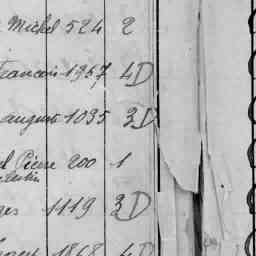 Michel 524 2
Francois 1967 4D
august 1035 3D
Pierre 200 1
1119 3D
1868 4D